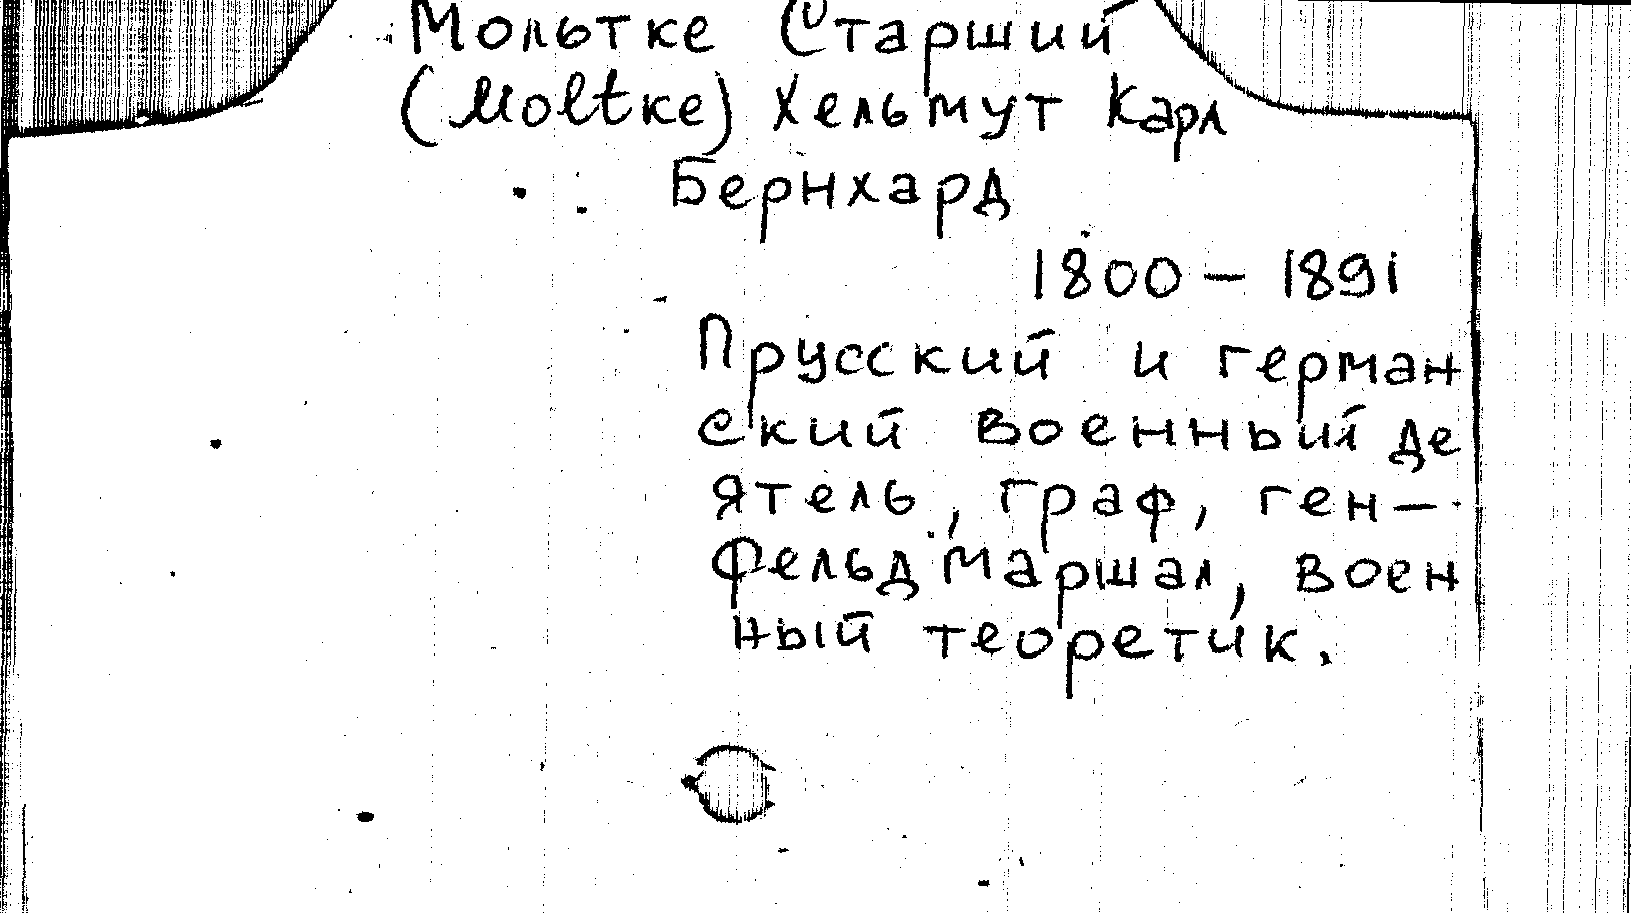 Мольтке Старший
(Moltке) Хельмут Карл
Бернхард
1800 – 1891
Прусский и герман
ский военный де
ятель, граф, ген–
фельдмаршал, воен
ный теоретик.